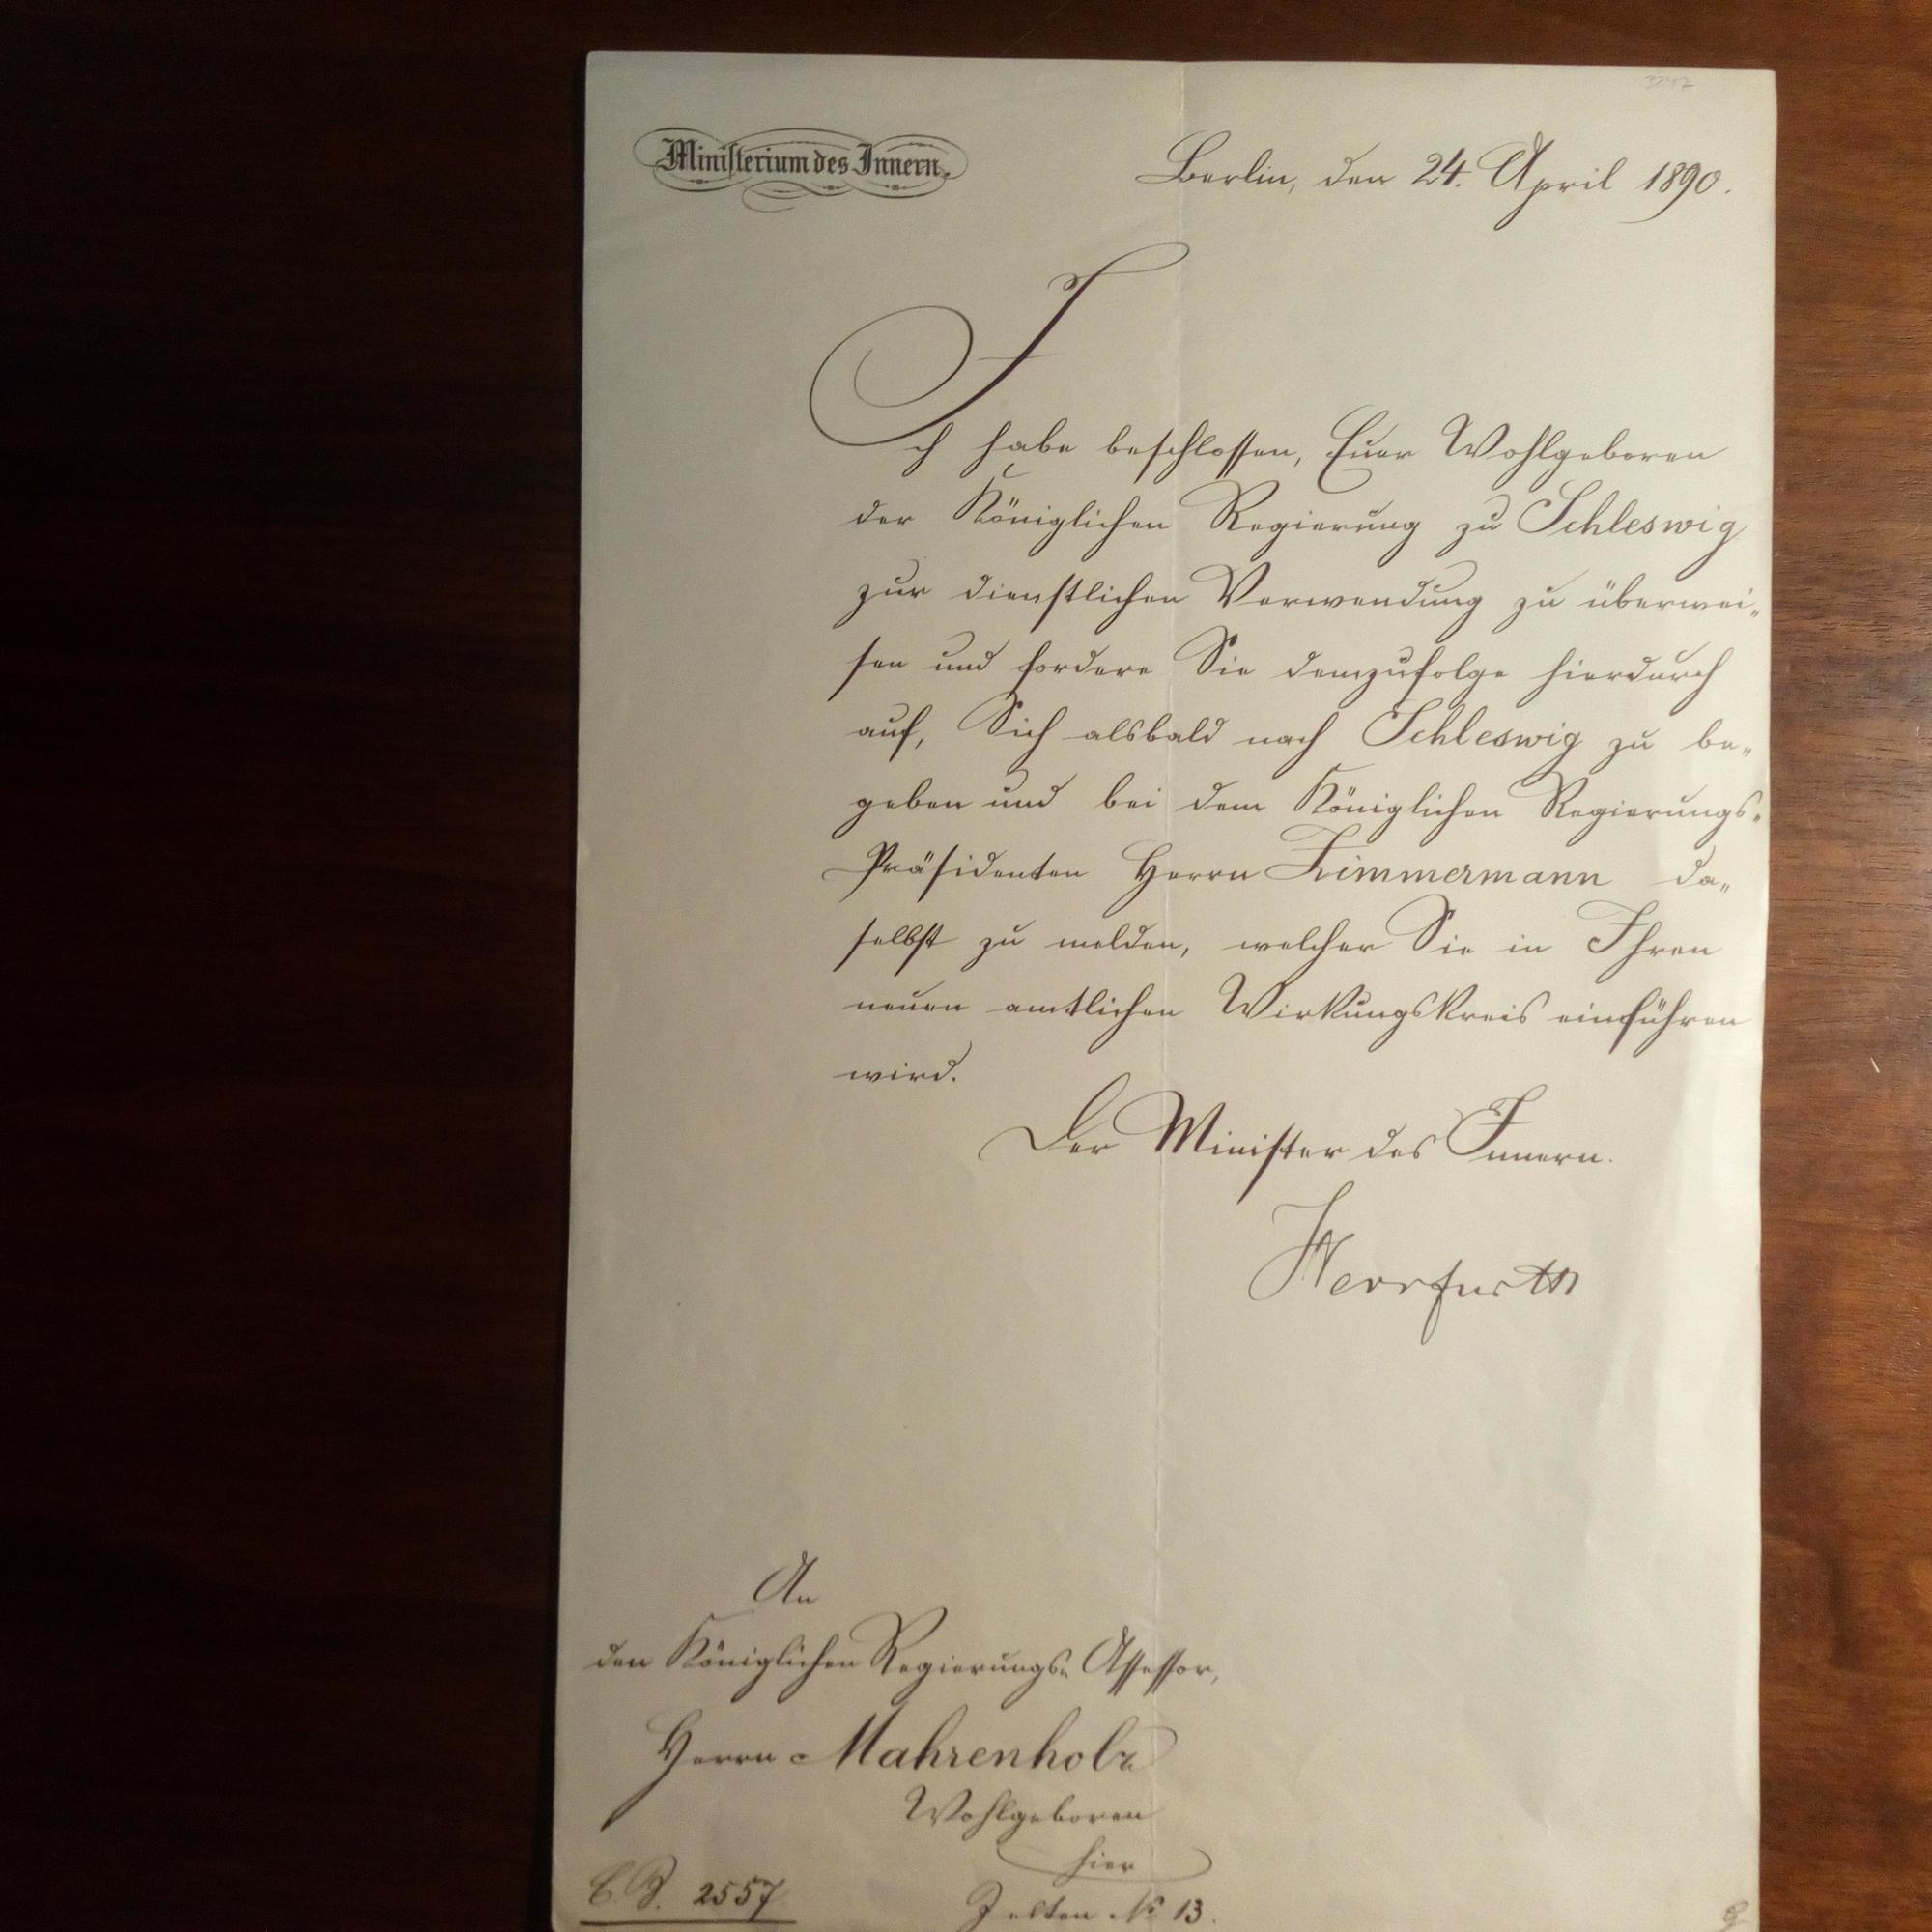 Ministerium des Innern.
Berlin, den 24. April 1890.
Ich habe beschlossen, Euer Wohlgeboren
der Königlichen Regierung zu Schleswig
zur dienstlichen Verwendung zu überwei-
sen und fordere Sie demzufolge hierdurch
auf, Sich alsbald nach Schleswig zu be-
geben und bei dem Königlichen Regierungs-
Präsidenten Herrn Zimmermann da-
selbst zu melden, welcher Sie in Ihren
neuen amtlichen Wirkungskreis einführen
wird.
Der Minister des Innern.
Herrfurth
An
den Königlichen Regierungs-Assessor,
Herrn Mahrenholz
Wohlgeboren
hier
Zelten No 13.
2557